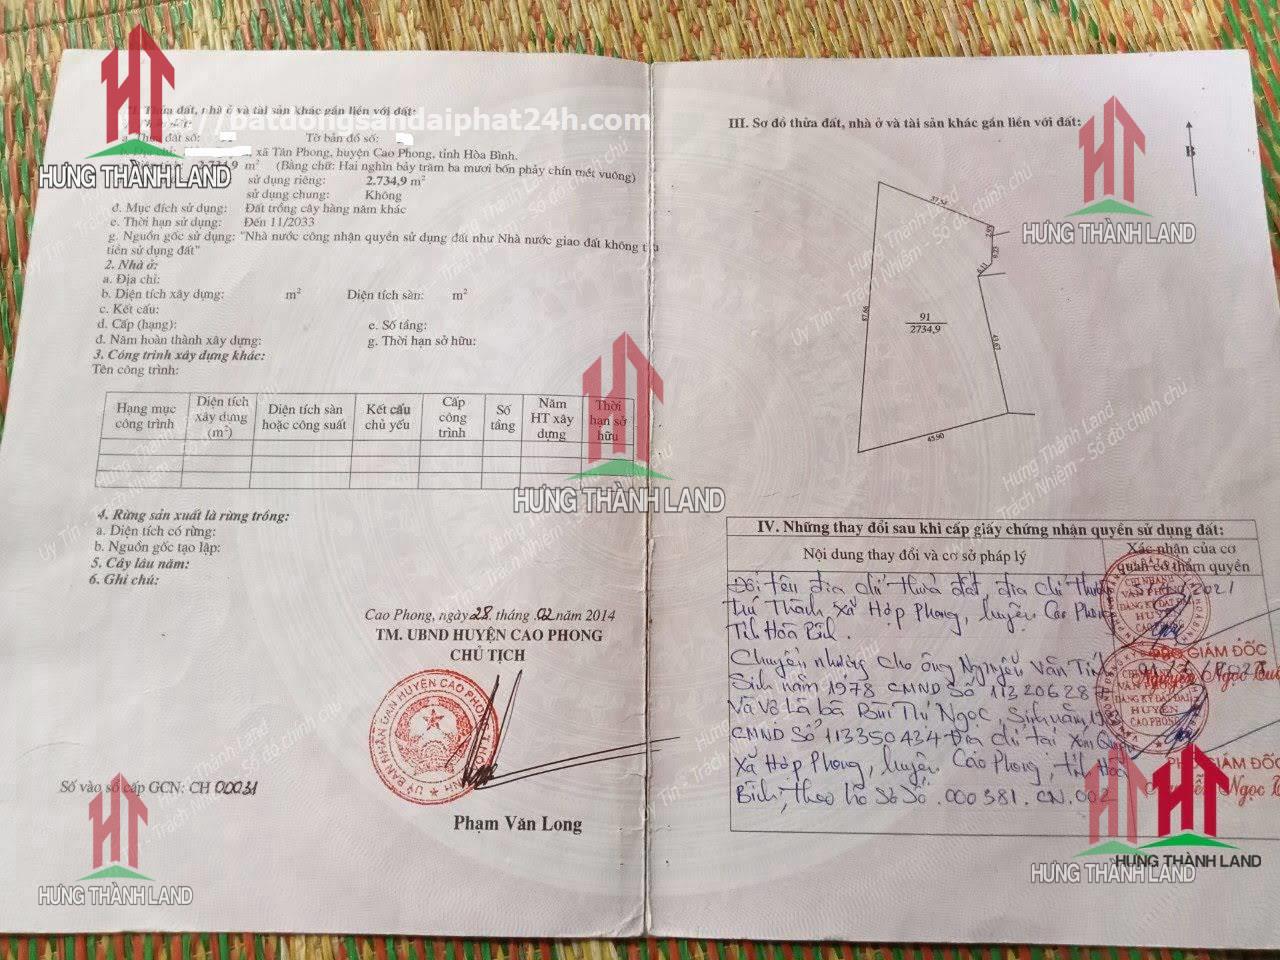 II. Thửa đất, nhà ở và tài sản khác gắn liền với đất:
batdongsandaiphat24h.com
a. Thửa đất số: Tờ bản đồ số:
xã Tân Phong, huyện Cao Phong, tỉnh Hòa Bình.
2.734,9 m² (Bằng chữ: Hai nghìn bảy trăm ba mươi bốn phẩy chín mét vuông)
sử dụng riêng: 2.734,9 m²
sử dụng chung: Không
đ. Mục đích sử dụng: Đất trồng cây hàng năm khác
e. Thời hạn sử dụng: Đến 11/2033
g. Nguồn gốc sử dụng: "Nhà nước công nhận quyền sử dụng đất như Nhà nước giao đất không
tiền sử dụng đất"
2. Nhà ở:
a. Địa chỉ:
b. Diện tích xây dựng: m² Diện tích sàn: m²
c. Kết cấu:
d. Cấp (hạng): e. Số tầng:
đ. Năm hoàn thành xây dựng: g. Thời hạn sở hữu:
3. Công trình xây dựng khác:
Tên công trình:
Hạng mục công trình
Diện tích xây dựng (m²)
Diện tích sàn hoặc công suất
Kết cấu chủ yếu
Cấp công trình
Số tầng
Năm HT xây dựng
Thời hạn sở hữu
4. Rừng sản xuất là rừng trồng:
a. Diện tích có rừng:
b. Nguồn gốc tạo lập:
5. Cây lâu năm:
6. Ghi chú:
Cao Phong, ngày 28 tháng 02 năm 2014
TM. UBND HUYỆN CAO PHONG
CHỦ TỊCH
Phạm Văn Long
Số vào sổ cấp GCN: CH 00031
III. Sơ đồ thửa đất, nhà ở và tài sản khác gắn liền với đất:
B
91
2734,9
87.66
43.67
45.90
IV. Những thay đổi sau khi cấp giấy chứng nhận quyền sử dụng đất:
Nội dung thay đổi và cơ sở pháp lý
Xác nhận của cơ quan có thẩm quyền
Đổi tên địa chỉ thửa đất, địa chỉ thường
trú Thành xã Hợp Phong, huyện Cao Phong
Tỉnh Hòa Bình.
Chuyển nhượng cho ông Nguyễn Văn
Sinh năm 1978 CMND Số
Và vợ là bà Bùi Thị Ngọc, Sinh năm
CMND Số 113350434 Địa chỉ tại xóm
xã Hợp Phong, huyện Cao Phong, tỉnh Hòa
Bình, theo hồ sơ số 000381.CN.002
GIÁM ĐỐC
Nguyễn Ngọc
GIÁM ĐỐC
Ngọc
HƯNG THÀNH LAND
HƯNG THÀNH LAND
HƯNG THÀNH LAND
HƯNG THÀNH LAND
HƯNG THÀNH LAND
HƯNG THÀNH LAND